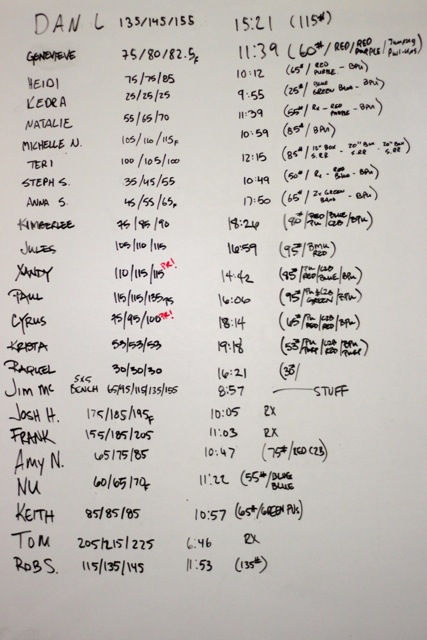 DAN L 135/145/155 15:21 (115#)
GENEVIEVE 75/80/82.5F 11:39 (60#/RED/RED PURPLE/Jumping Pull-Ups)
HEIDI 75/75/85 10:12 (65#/RED PURPLE - BPU)
KEDRA 25/25/25 9:55 (25#/BLUE GREEN BLUE - BPU)
NATALIE 55/65/70 11:39 (55#/Rx - RED PURPLE - BPU)
MICHELLE N. 105/110/115F 10:59 (85#/BPU)
TERI 100/105/100 12:15 (85#/12" BOX S.RR - 20" BOX S.RR - 20" BOX S.RR)
STEPH S. 35/45/55 10:49 (50#/Rx - RED BLUE - BPU)
ANNA S. 45/55/65F 17:50 (65#/2x GREEN BAND - BPU)
KIMBERLEE 75/85/90 18:26 (90#/RED/BLUE/BPU PU/C2B)
JULES 105/110/115 16:59 (95#/BMU RED)
XANDY 110/115/115 PR! 14:42 (85#/PU/C2B/BPU RED/BLUE)
PAUL 115/115/135 75 16:06 (95#/PU&C2B/BPU GREEN)
CYRUS 75/95/100 PR! 18:14 (65#/PU/C2B/BPU RED/RED)
KRISTA 53/53/53 19:18 (53#/PU/C2B/BPU)
RAQUEL 30/30/30 16:21 (30/
JIM MC 5x5 BENCH 65/95/115/135/155 8:57 STUFF
JOSH H. 175/185/195F 10:05 RX
FRANK 155/185/205 11:03 RX
AMY N. 65/75/85 10:47 (75#/RED C2B)
NU 60/65/70F 11:22 (55#/BLUE BLUE)
KEITH 85/85/85 10:57 (65#/GREEN PUs)
TOM 205/215/225 6:46 RX
ROB S. 115/135/145 11:53 (135#)